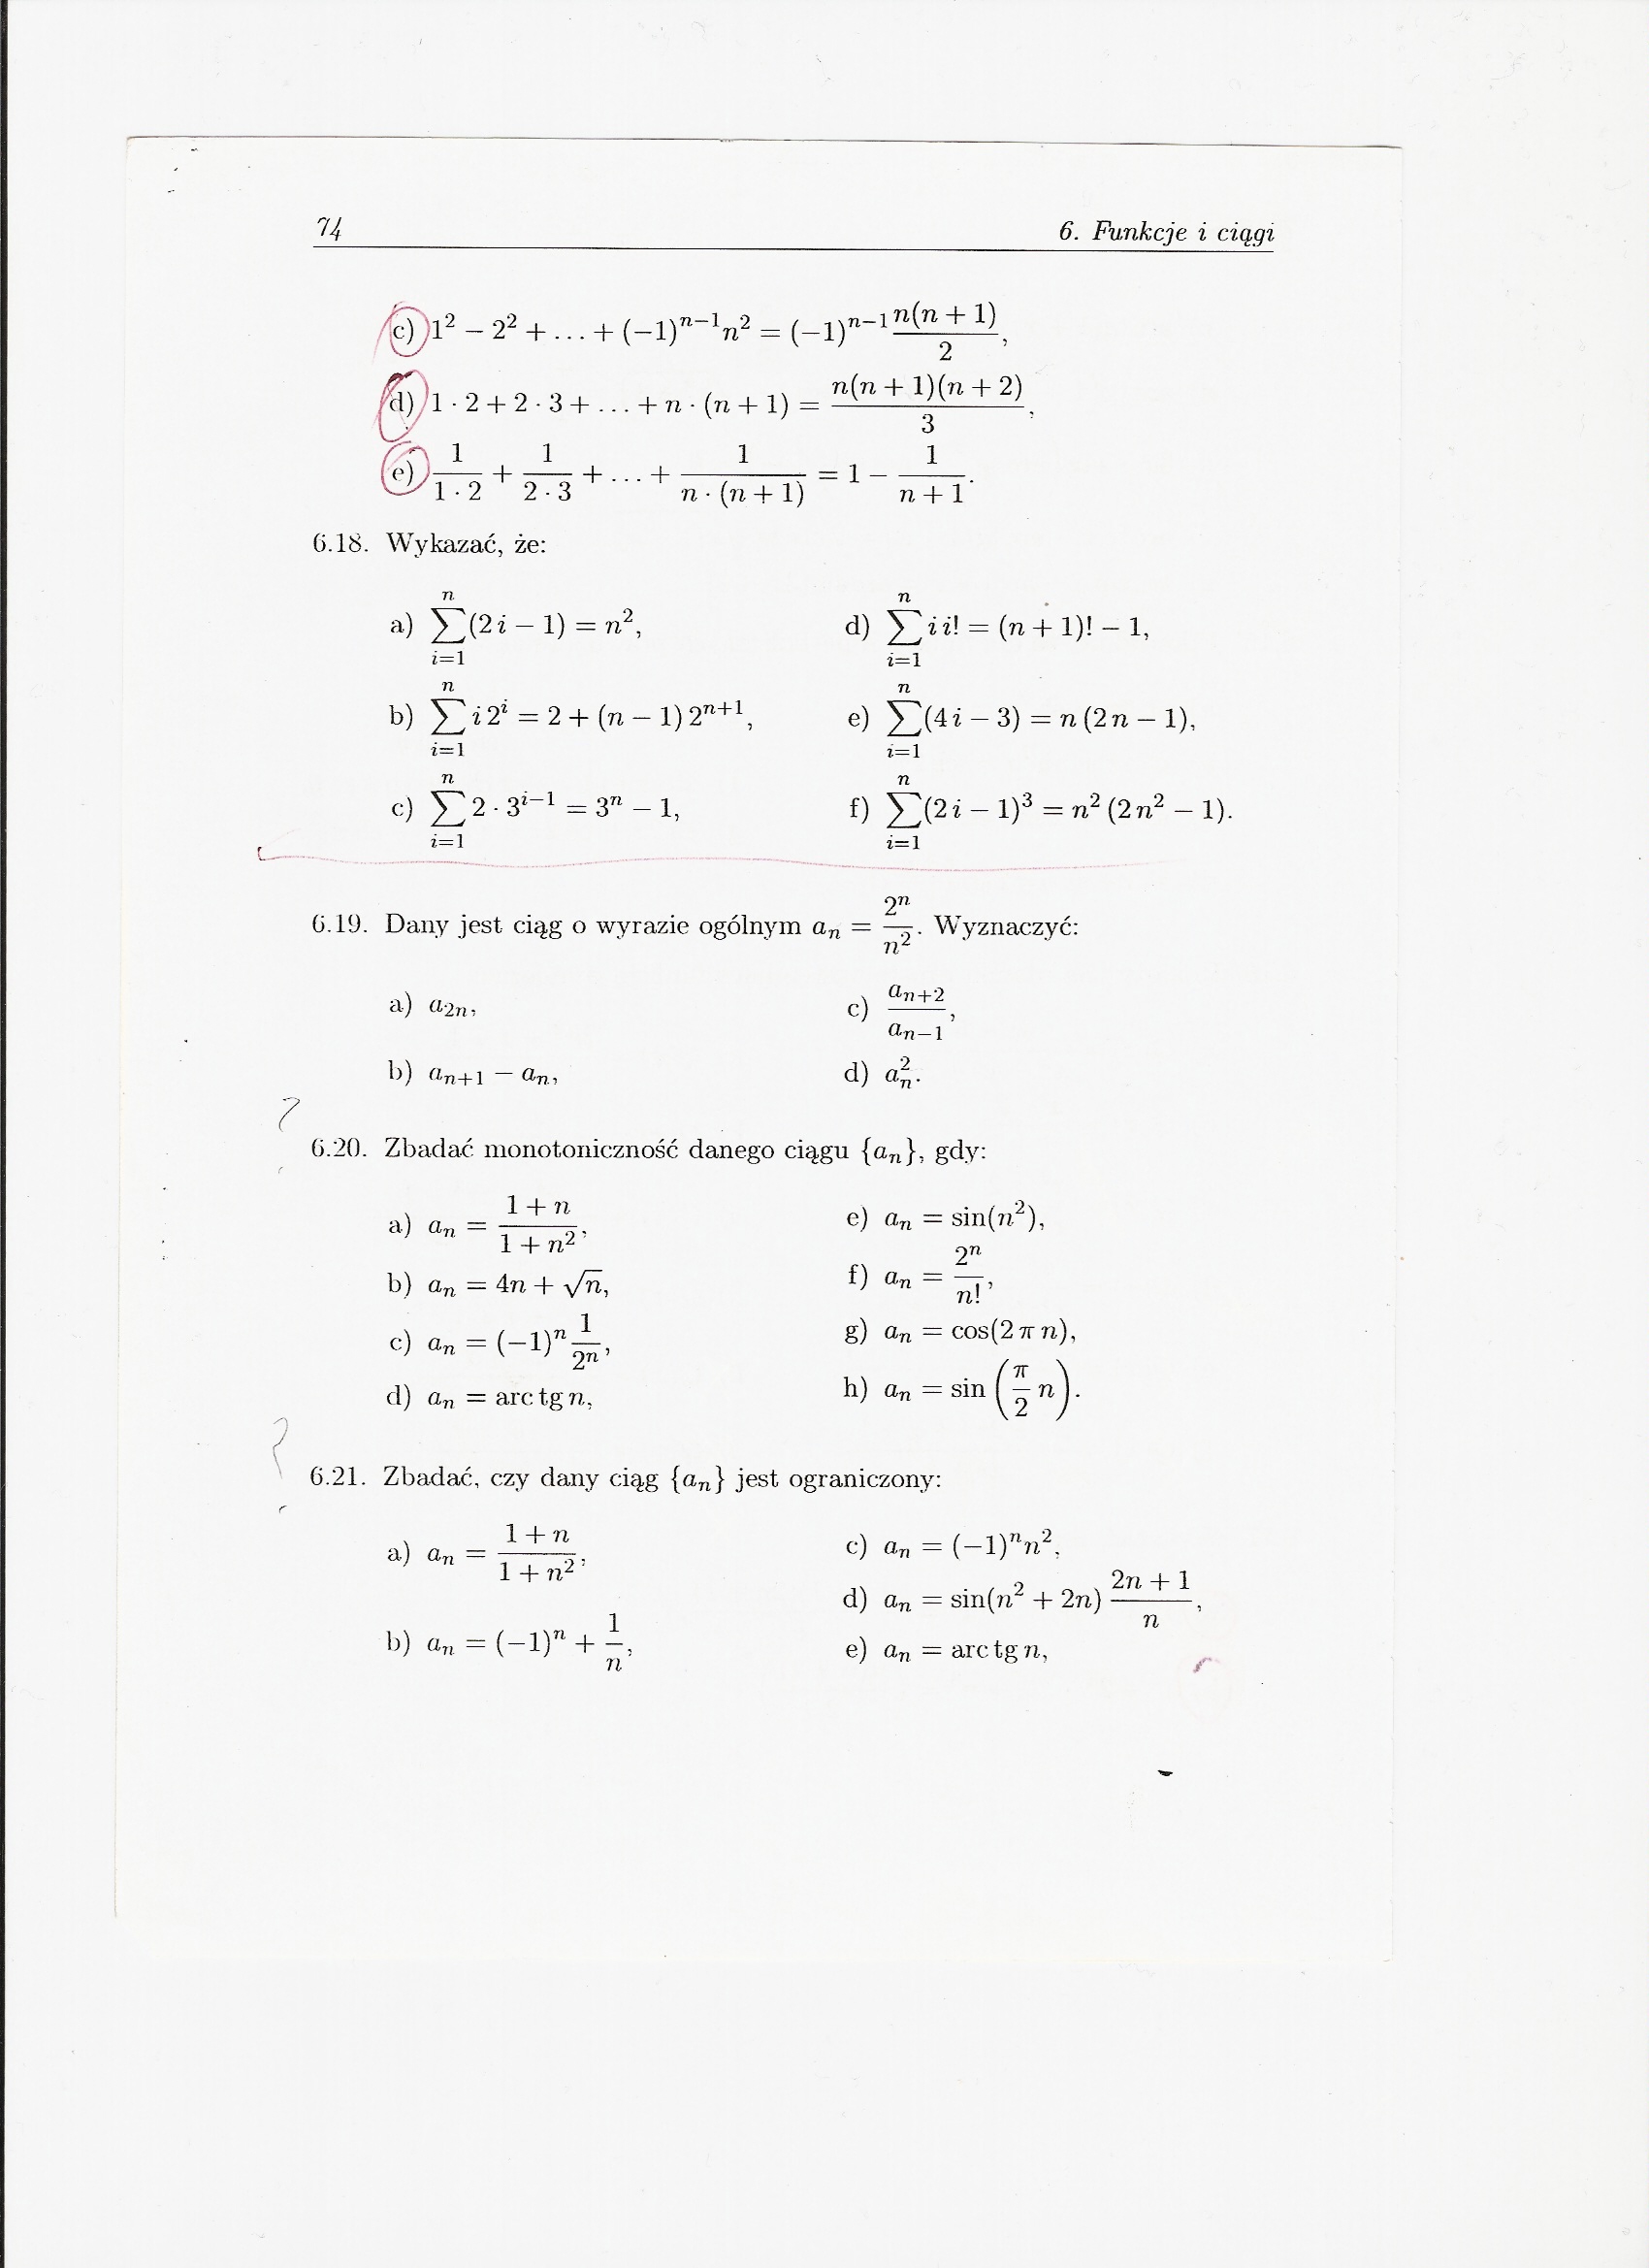 74 6. Funkcje i ciągi
c) 1² − 2² + ... + (−1)ⁿ⁻¹n² = (−1)ⁿ⁻¹ n(n + 1)/2,
d) 1 · 2 + 2 · 3 + ... + n · (n + 1) = n(n + 1)(n + 2)/3,
e) 1/(1 · 2) + 1/(2 · 3) + ... + 1/(n · (n + 1)) = 1 − 1/(n + 1).
6.18. Wykazać, że:
a) ∑_{i=1}^{n} (2i − 1) = n², d) ∑_{i=1}^{n} i i! = (n + 1)! − 1,
b) ∑_{i=1}^{n} i 2ⁱ = 2 + (n − 1) 2ⁿ⁺¹, e) ∑_{i=1}^{n} (4i − 3) = n (2n − 1),
c) ∑_{i=1}^{n} 2 · 3ⁱ⁻¹ = 3ⁿ − 1, f) ∑_{i=1}^{n} (2i − 1)³ = n² (2n² − 1).
6.19. Dany jest ciąg o wyrazie ogólnym aₙ = 2ⁿ/n². Wyznaczyć:
a) a₂ₙ, c) aₙ₊₂/aₙ₋₁,
b) aₙ₊₁ − aₙ, d) aₙ².
?
6.20. Zbadać monotoniczność danego ciągu {aₙ}, gdy:
a) aₙ = (1 + n)/(1 + n²), e) aₙ = sin(n²),
b) aₙ = 4n + √n, f) aₙ = 2ⁿ/n!,
c) aₙ = (−1)ⁿ 1/2ⁿ, g) aₙ = cos(2 π n),
d) aₙ = arc tg n, h) aₙ = sin (π/2 n).
?
6.21. Zbadać, czy dany ciąg {aₙ} jest ograniczony:
a) aₙ = (1 + n)/(1 + n²), c) aₙ = (−1)ⁿn²,
d) aₙ = sin(n² + 2n) (2n + 1)/n,
b) aₙ = (−1)ⁿ + 1/n, e) aₙ = arc tg n,